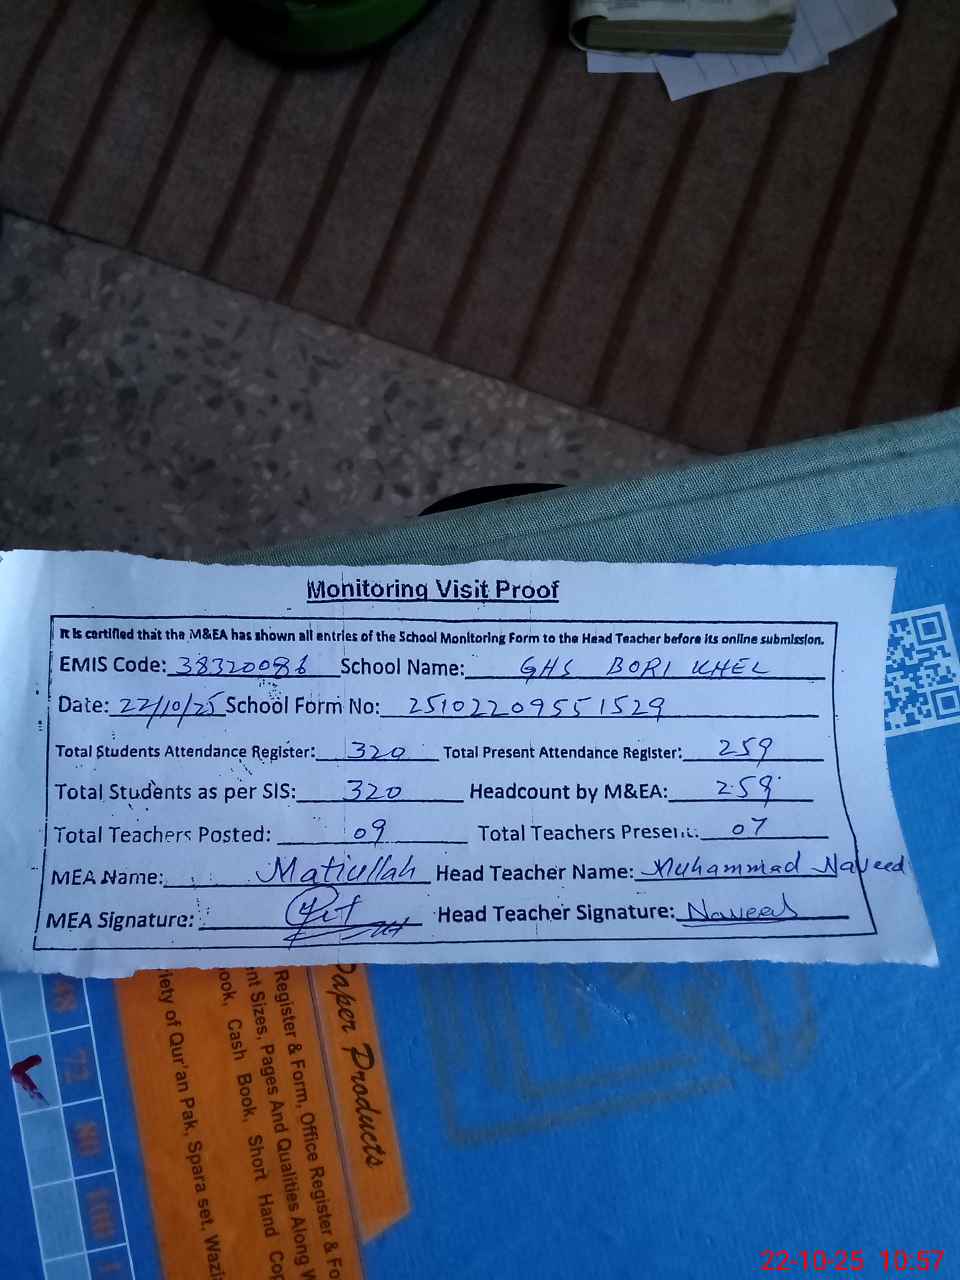 Monitoring Visit Proof
It is certified that the M&EA has shown all entries of the School Monitoring Form to the Head Teacher before its online submission.
EMIS Code: 38320086 School Name: GHS BORI KHEL
Date: 22/10/25 School Form No: 25102209551529
Total Students Attendance Register: 320 Total Present Attendance Register: 259
Total Students as per SIS: 320 Headcount by M&EA: 259
Total Teachers Posted: 09 Total Teachers Present: 07
MEA Name: Matiullah Head Teacher Name: Muhammad Naveed
MEA Signature: Head Teacher Signature: Naveed
Paper Products
Register & Form, Office Register & Fo
nt Sizes, Pages And Qualities Along W
ook, Cash Book, Short Hand Cop
iety of Qur'an Pak, Spara set, Wazi
48
72
22-10-25 10:57